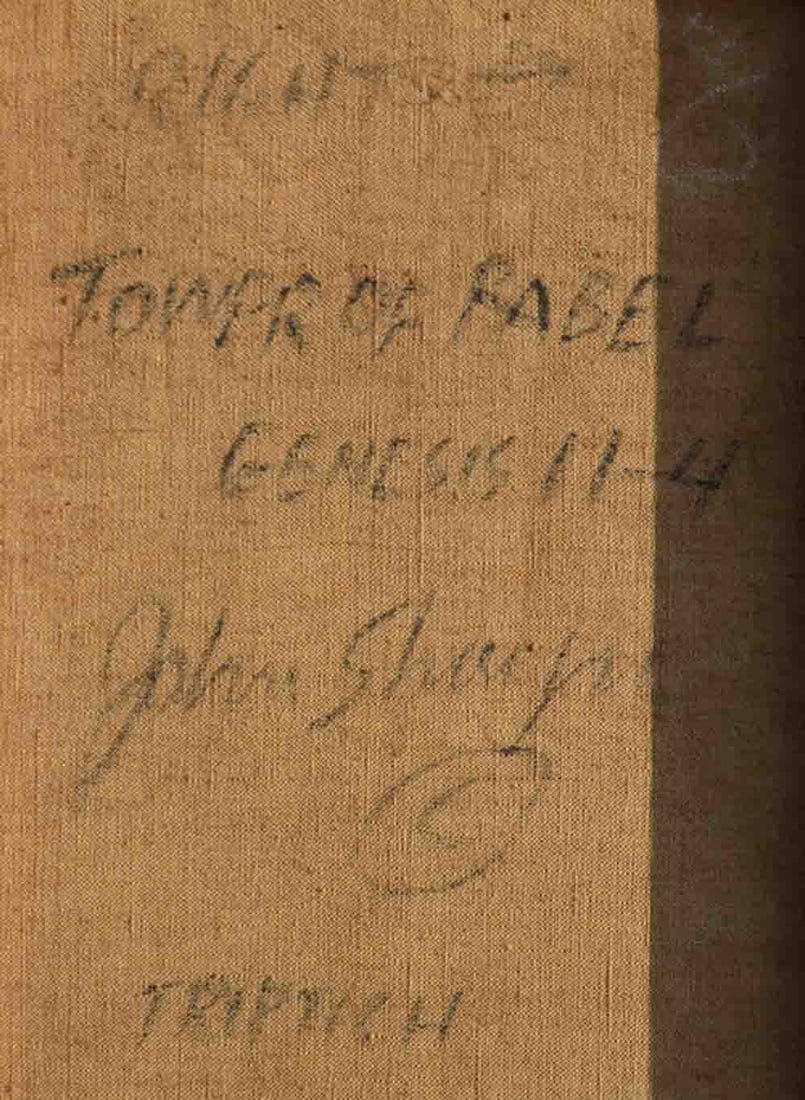 RIGHT →
TOWER OF BABEL
GENESIS 11-4
John
©
TRIPTYCH